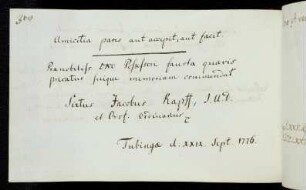 Amicitia pares aut accipit, aut facit.
Praenobiliss. Dno Possessori fausta quaevis
precatus seque memoriam commendat
Sixtus Jacobus Kapff, J.U.D.
et Prof. Ordinarius
Tubinga d. XXIX. Sept. 1776.